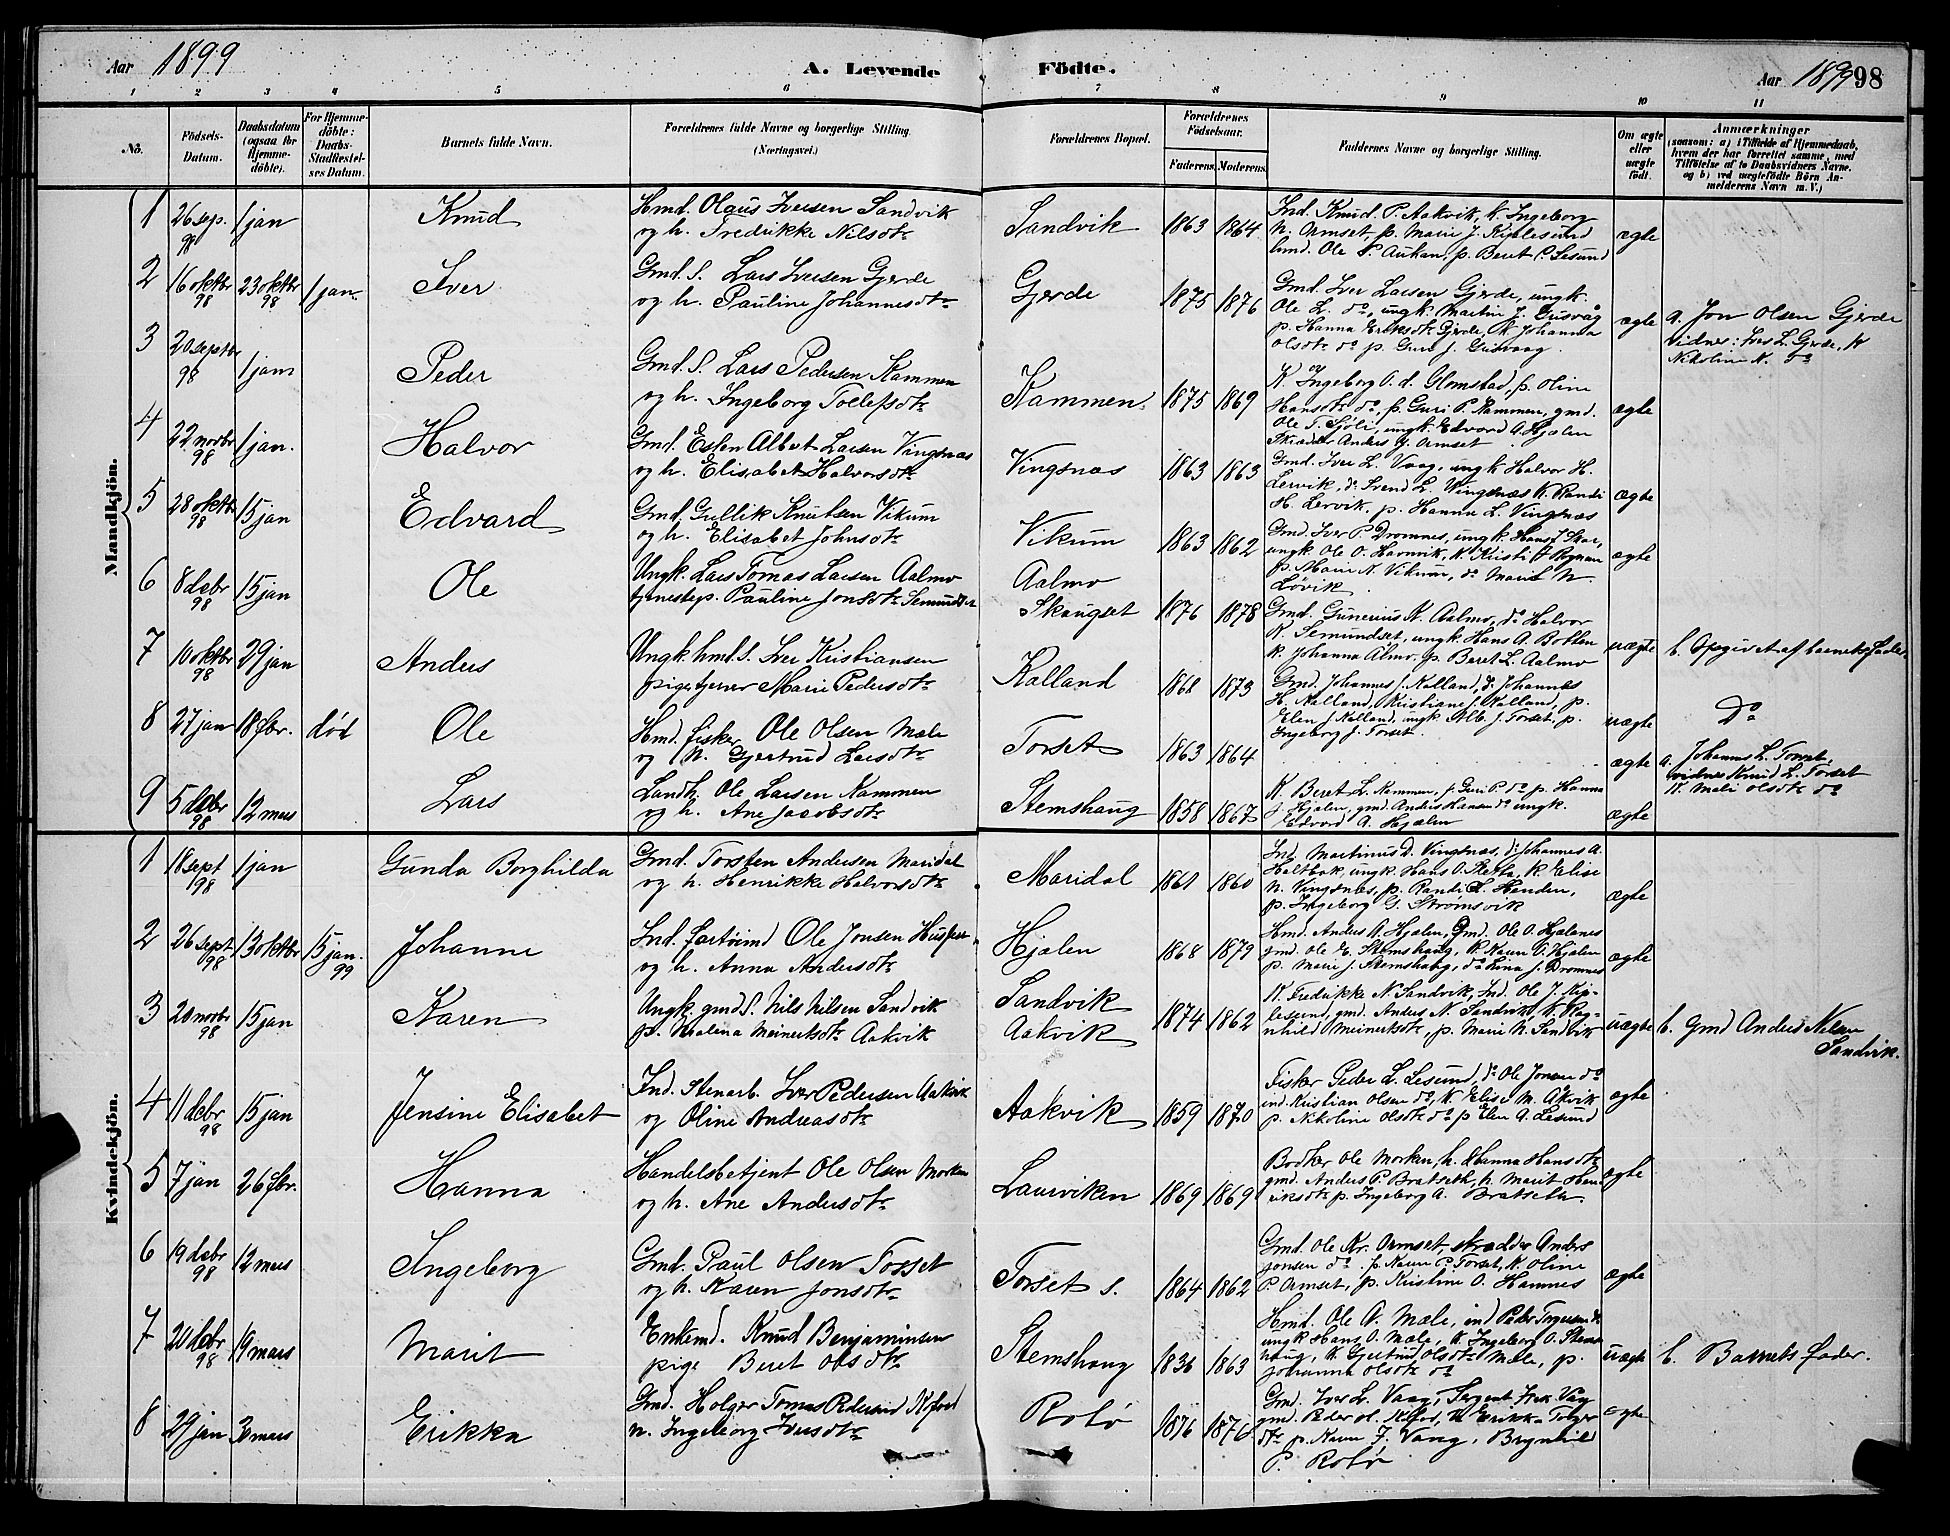 Aar 1899
A. Levende Födte.
Aar 1899
98
1 2 3 4 5 6 7 8 9 10 11
No.
Födsels-Datum.
Daabsdatum (ogsaa for Hjemme-döbte).
For Hjemme-döbte: Daabs-Stadfæstel-ses Datum.
Barnets fulde Navn.
Forældrenes fulde Navne og borgerlige Stilling. (Næringsvei.)
Forældrenes Bopæl.
Forældrenes Födselsaar.
Faderens. Moderens.
Faddernes Navne og borgerlige Stilling.
Om ægte eller uægte födt.
Anmærkninger
(saasom: a) i Tilfælde af Hjemmedaab,
hvem der har forrettet samme, med
Tilföielse af to Daabsvidners Navne,
og b) ved uægtefödte Börn An-
melderens Navn m. V.)
Mandkjön.
1 26 sep. 98 1 jan Knud
Hmd. Olaus Iversen Sandvik
og h. Fredrikke Nilsdtr
Sandvik 1863 1864
Ind. Knud P. Aakvik, k. Ingeborg
N. Ormset, p. Marie J. Kiplesund
hmd. Ole S. Aukan, p. Beret C. Lesund
ægte
2 16 oktbr 98 23 oktbr 98 1 jan. Iver
Gmd. S. Lars Iversen Gjerde
og h. Pauline Johannesdtr
Gjerde 1875 1876
Gmd. Iver Larsen Gjerde, ungk.
Ole L. do, ungk. Martin J. Gusvåg
p. Hanna Eriksdtr Gjerde, k. Johanna
Olsdtr do p. Guri J. Gusvaag.
ægte
a. Jon Olsen Gjerde
vidner: Iver L. Gjerde, k
Nikoline N. do
3 20 septbr 98 1 jan Peder
Gmd. S. Lars Pedersen Kammen
og h. Ingeborg Tollefsdtr
Kammen. 1875 1869
K. Ingeborg O. d. Glomstad, p. Oline
Hansdtr do, p. Guri P. Kammen, gmd.
Ole T. Sjöli, ungk. Edvard A. Hjælen
Skrædder Anders J. Ormset
ægte
4 22 novbr 98 1 jan. Halvor
Gmd. Esten Albert Larsen Vingsnæs
og h. Elisabet Halvorsdtr
Vingsnæs 1863 1863
Gmd. Iver L. Vaag, ungk Halvor H.
Lervik, do Svend L. Vingsnæs K. Randi
H. Lervik, p. Hanna L. Vingsnæs
ægte
5 28 oktbr 98 15 jan Edvard
Gmd. Gullik Knutsen Vikum
og h. Elisabet Johnsdtr
Vikum 1863 1862
Gmd. Iver P. Dromnes, ungk Hans J Skar,
ungk. Ole O. Havnvik, K. Kristi
p. Marie N. Vikum, do Marit N
Løvik.
ægte
6 8 debr 98 15 jan Ole
Ungk. Lars Tomas Larsen Aalmo
tjenestep. Pauline Jonsdtr Semundset
Aalmo
Skougset 1876 1878
Gmd. Gunerius K. Aalmo, do Halvor
K. Semundset, ungk. Hans A. Botten
k. Johanna Almo, p. Beret L. Aalmo
uægte
b. Opgivet af barnets fader.
7 10 oktbr 98 29 jan Anders
Ungk. hmd. s. Iver Kristiansen
pige tjener Marie Pedersdtr
Kalland 1868 1873
Gmd. Johannes J. Kalland, do Johannes
H. Kalland, Kristiane J. Kalland, p.
Elen J. Kalland, ungk. Alb. J. Torset, p.
Ingeborg J. Torset.
uægte
Do
8 27 jan 18 fbr. død Ole
Hmd. fisker Ole Olsen Mæle
og h. Gjertrud Larsdtr
Torset 1863 1864
ægte
a. Johannes L. Torset,
vidner Knud L. Torset
K. Mali Olsdtr do
9 5 debr 98 12 mars Lars
Landh. Ole Larsen Kammen
og h. Ane Jacobsdtr
Stemshaug 1858 1867
K. Beret L. Kammen, p. Guri P. do p. Hanna
J. Hjælen, gmd. Anders Hansen do ungk.
Edvard A. Hjælen
ægte
Kvindekjön.
1 18 sept 98 1 jan Gunda Borghilda
Gmd. Torsten Andersen Maridal
og h. Henrikke Halvorsdtr
Maridal 1861 1860
Ind. Martinus D. Vingsnæs, do Johannes A.
Holtbak, ungk. Hans O. Sletta, k Elise
N. Vingsnæs, p. Randi L. Henden,
p. Ingeborg G. Strömsvik
ægte
2 26 sept 98 13 oktbr 15 jan. 99 Johanne
Ind. Ole Jonsen
og h. Anna Andersdtr
Hjælen 1868 1879
Hmd. Anders A. Hjælen, Gmd. Ole O. Hjælnes
gmd. Ole E. Stemshaug, k. Karen O. Hjælen
p. Marie J. Stemshaug, do Lina J. Dromnes
ægte
3 20 novbr 98 15 jan Karen
Ungk. gmd S. Nils Nilsen Sandvik
p. Malena Meinertsdtr Aakvik
Sandvik
Aakvik 1874 1862
K. Fredrikke N. Sandvik, Ind. Ole J. Kip-
lesund, gmd. Anders N. Sandvik, K. Rag-
nhild Meinertsdtr, p. Marie N. Sandvik
uægte
b. Gmd Anders Nilsen
Sandvik.
4 11 debr 98 15 jan Jensine Elisabet
Ind. Stenarb. Iver Pedersen Aakvik
og Oline Andreasdtr
Aakvik 1859 1870
Fisker Peder L. Lesund, do Ole Jonsen do
ind. Kristian Olsen do, K. Elise M. Akvik
p. Nikoline Olsdtr do p Elen A. Lesund
ægte
5 7 jan 26 fbr. Hanna
Handelsbetjent Ole Olsen Morken
og h. Ane Andersdtr
Laurviken 1869 1869
Bodker Ole Morken, h. Hanna Hansdtr
gmd. Anders P. Bratseth, h. Marit Hen-
riksdtr p. Ingeborg A. Bratseth.
ægte
6 19 debr 98 12 mars Ingeborg
Gmd. Paul Olsen Torset
og h. Karen Jonsdtr
Torset s. 1864 1862
Gmd. Ole Kr. Ormset, skrædder Anders
Jonsen do p. Karen P. Torset, k. Oline
P. Ormset, p. Kristine O. Hamnes
ægte
7 20 debr 98 19 mars Marit
Enkemd. Knud Benjaminsen
pige Beret Olsdtr
Stemshaug 1836 1863
Hmd. Ole O. Mæle, ind Peder
ungk Hans O. Mæle, K. Ingeborg O. Stems-
haug, K. Gjertrud Olsdtr Mæle, p.
Johanna Olsdtr do
uægte
b. Barnets fader.
8 29 jan 30 mars Erikka
Gmd. Holger Tomas Pedersen
h. Ingeborg Iversdtr
Rotø 1876 1876
Gmd. Iver L. Vaag, Sergent Vaag
gmd. Peder H. K. Erikka Tolger
dtr p. Karen I. Vaag, Brynhild
P. Rotø
ægte